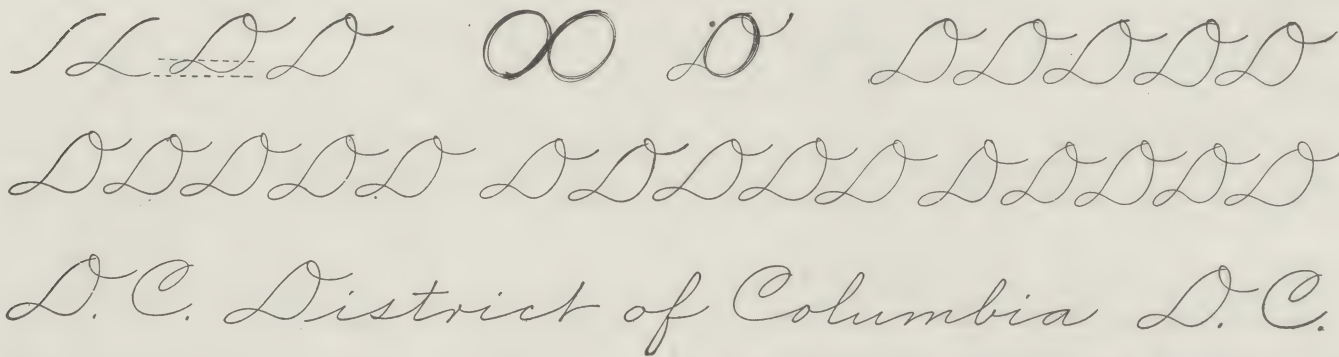 D D D D D D D D
D D D D D D D D D D D D D D D
D.C. District of Columbia D.C.